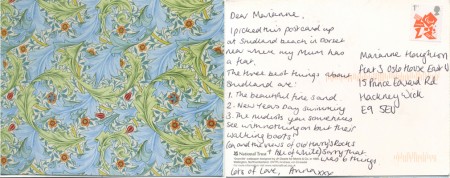 Dear Marianne,
I picked this postcard up
at Studland beach in Dorset
near where my Mum has
a flat.
The three best things about
Studland are:
1. The beautiful fine sand
2. New Years Day swimming
3. The nudists you sometimes
see with nothing on but their
walking boots!
(oh and the views of Old Harry's Rocks
+ Isle of Wight) Sorry that
was 5 things
Lots of love, Anna xxx
National Trust
Marianne Houghton
Flat 3 Oslo House East
15 Prince Edward Rd
Hackney Wick
E9 5EU